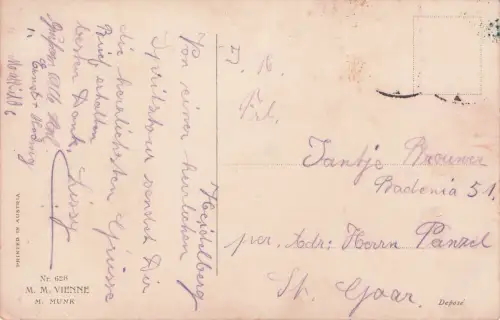 Heidelberg
Von einer herrlichen
Spritztour sendet Dir
die herzlichsten Grüsse
Lissy
Brief erhalten
besten Dank.
Frl.
Tantje Brouwer
Badenia 51.
per. Adr: Herrn Panzel
St. Goar.
Nr. 628
M. M. VIENNE
M. MUNK
Deposé
PRINTED IN AUSTRIA